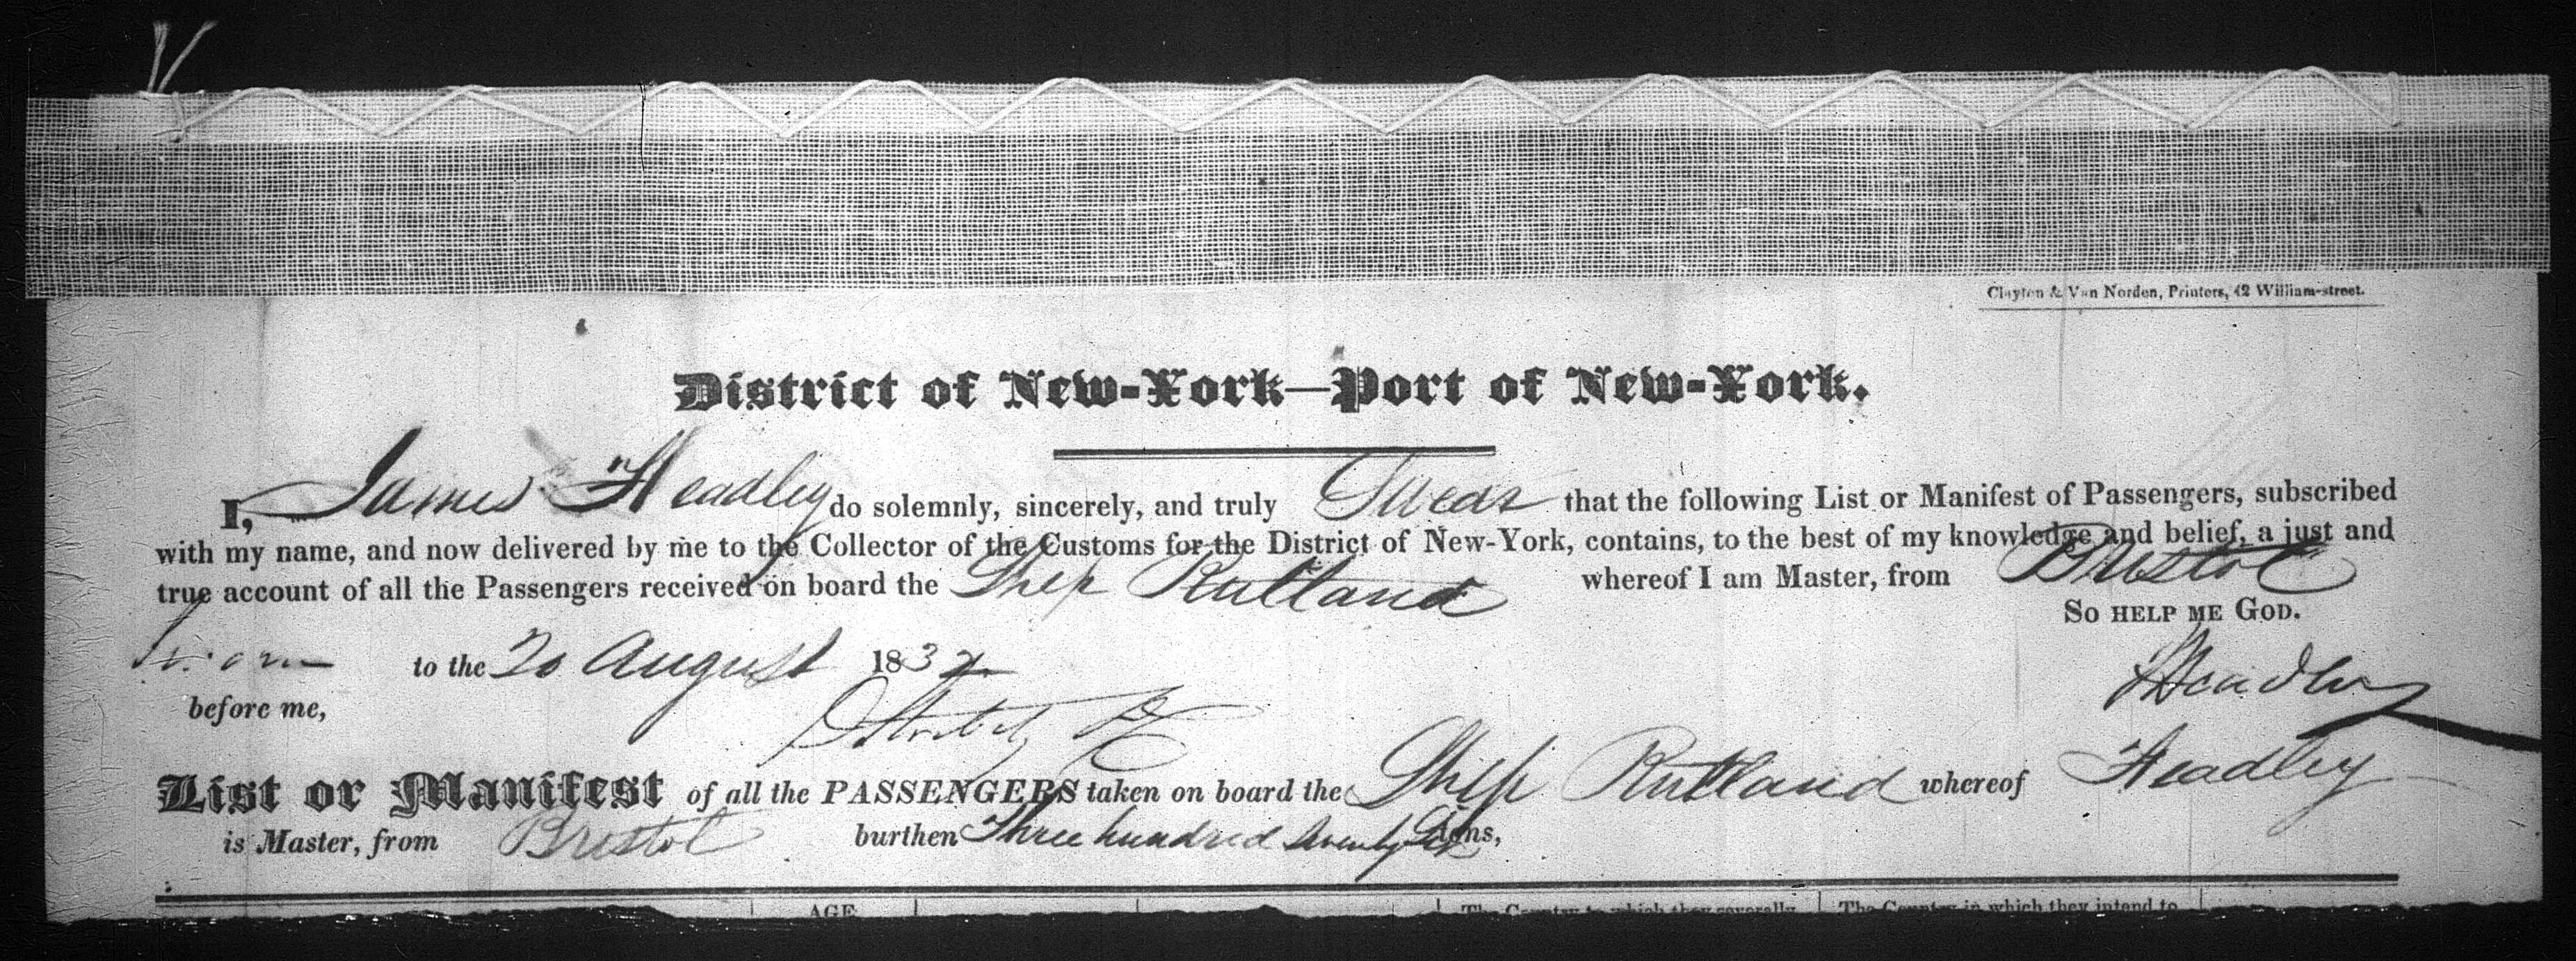 Clayton & Van Norden, Printers, 42 William-street.
District of New-York—Port of New-York.
I, James Headley do solemnly, sincerely, and truly Swear that the following List or Manifest of Passengers, subscribed
with my name, and now delivered by me to the Collector of the Customs for the District of New-York, contains, to the best of my knowledge and belief, a just and
true account of all the Passengers received on board the Ship Rutland whereof I am Master, from Bristol
So help me God.
Sworn to the 20 August 183
before me,
Headley
List or Manifest of all the PASSENGERS taken on board the Ship Rutland whereof Headley
is Master, from Bristol burthen Three hundred Seventy Six tons,
AGE The Country to which they severally The Country in which they intend to